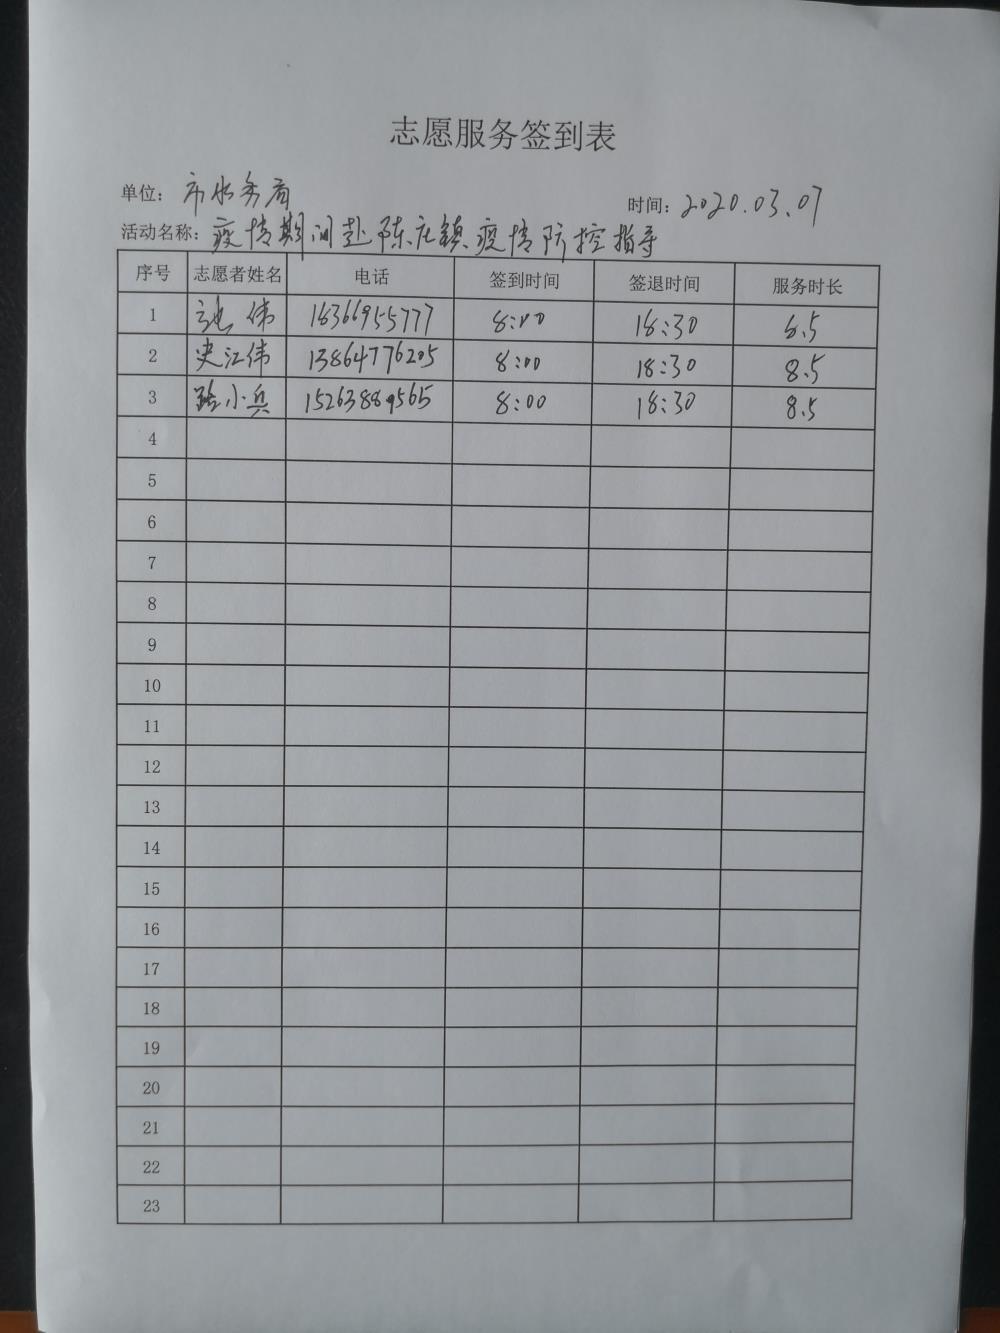 志愿服务签到表
单位：市水务局 时间：2020.03.07
活动名称：疫情期间赴陈庄镇疫情防控指导
序号 志愿者姓名 电话 签到时间 签退时间 服务时长
1 伟 18366955777 8:00 18:30 8.5
2 史江伟 13864776205 8:00 18:30 8.5
3 路小兵 15263889565 8:00 18:30 8.5
4
5
6
7
8
9
10
11
12
13
14
15
16
17
18
19
20
21
22
23